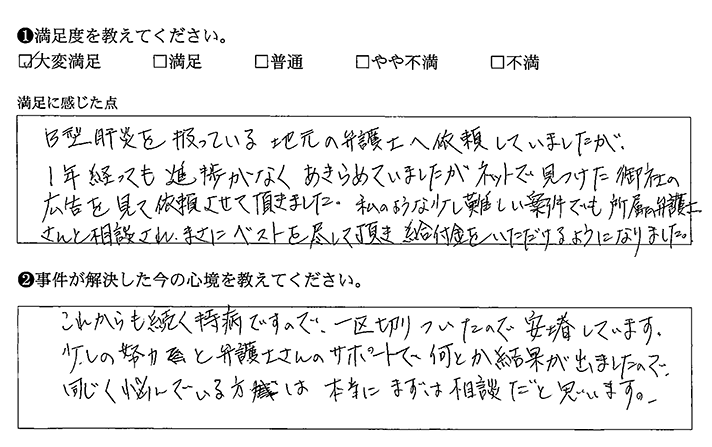 ❶満足度を教えてください。
☑大変満足 □満足 □普通 □やや不満 □不満
満足に感じた点
B型肝炎を扱っている地元の弁護士へ依頼していましたが、
1年経っても進捗がなくあきらめていましたがネットで見つけた御社の
広告を見て依頼させて頂きました。私のような少し難しい案件でも所属の弁護士
さんと相談され、まさにベストを尽して頂き給付金をいただけるようになりました。
❷事件が解決した今の心境を教えてください。
これからも続く持病ですので、一区切りついたので安堵しています。
少しの努力と弁護士さんのサポートで何とか結果が出ましたので、
同じく悩んでいる方は本当にまずは相談だと思います。